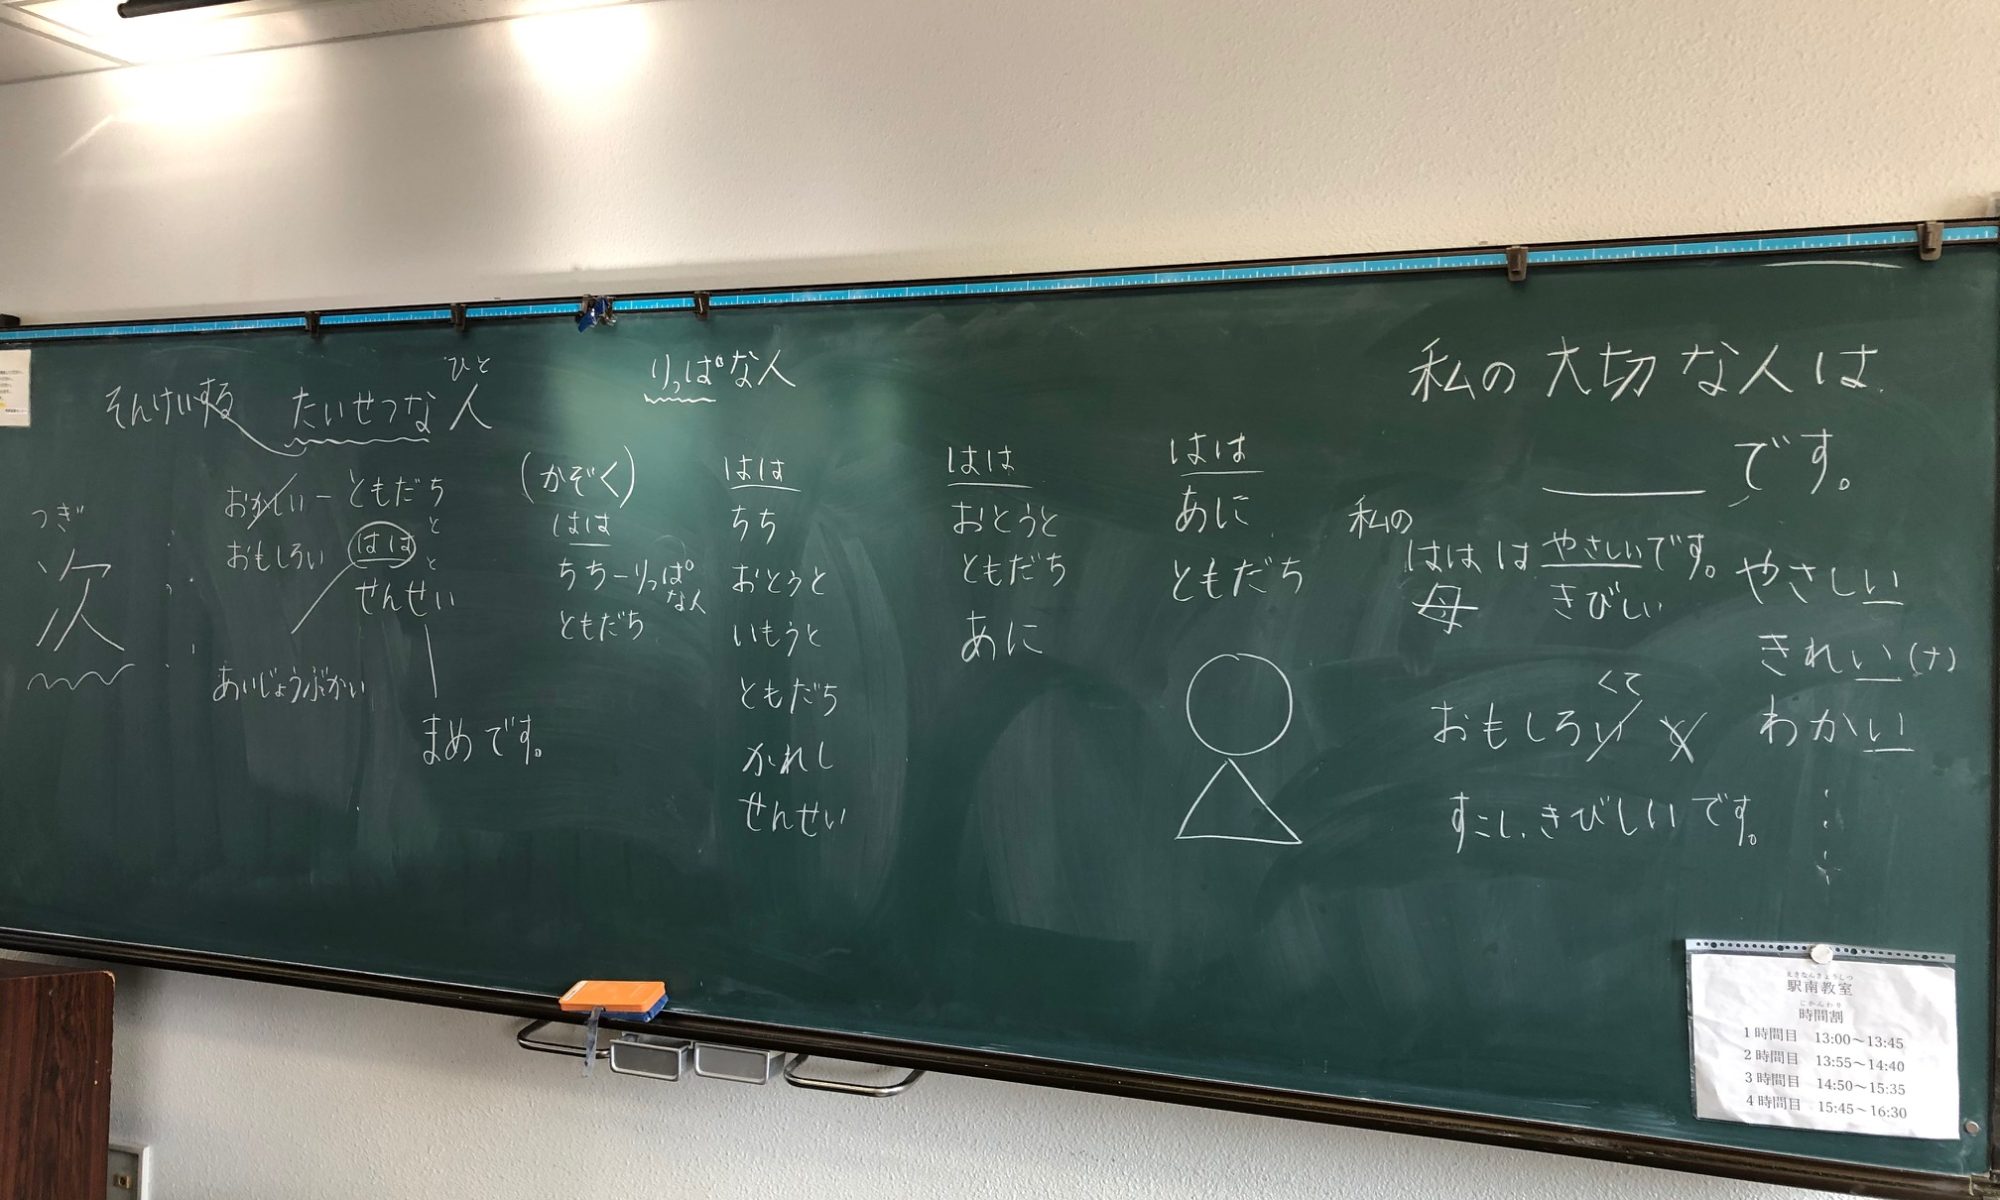 そんけいする たいせつな人
ひと
りっぱな人
つぎ
次
おかしい－ともだち
と
おもしろい
はは
と
せんせい
あいじょうぶかい
まめです。
(かぞく)
はは
ちち－りっぱ
な人
ともだち
はは
ちち
おとうと
いもうと
ともだち
かれし
せんせい
はは
おとうと
ともだち
あに
はは
あに
ともだち
私の大切な人は
です。
私の
はは は やさしいです。
母 きびしい
くて
おもしろい
すこし、きびしいです。
やさしい
きれい(ナ)
わかい
えきなんきょうしつ
駅南教室
じかんわり
時間割
1時間目 13:00～13:45
2時間目 13:55～14:40
3時間目 14:50～15:35
4時間目 15:45～16:30